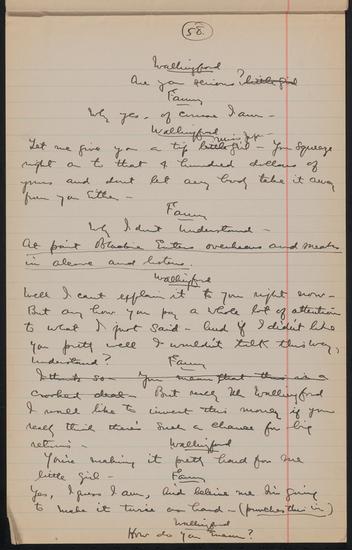 58.
Wallingford
Are you serious? little girl
Fanny
Why yes, of course I am -
Wallingford
Let me give you a tip little girl - You squeeze
right on to that 4 hundred dollars of
yours and dont let any body take it away
from you Either -
Fanny
Why I dont understand -
At point Blackie Enters overhears and sneaks
in alcove and listens.
Wallingford
Well I cant explain it to you right now -
But any how you pay a whole lot of attention
to what I just said - And if I didn't like
you pretty well I wouldn't talk this way,
understand?
Fanny
I think so - You mean that this is a
crooked deal - But really Mr Wallingford
I would like to invest this money if you
really think there's such a chance for big
returns -
Wallingford
You're making it pretty hard for me
little girl -
Fanny
Yes, I guess I am, and believe me I'm going
to make it twice as hard - (punches this in)
Wallingford
How do you mean?